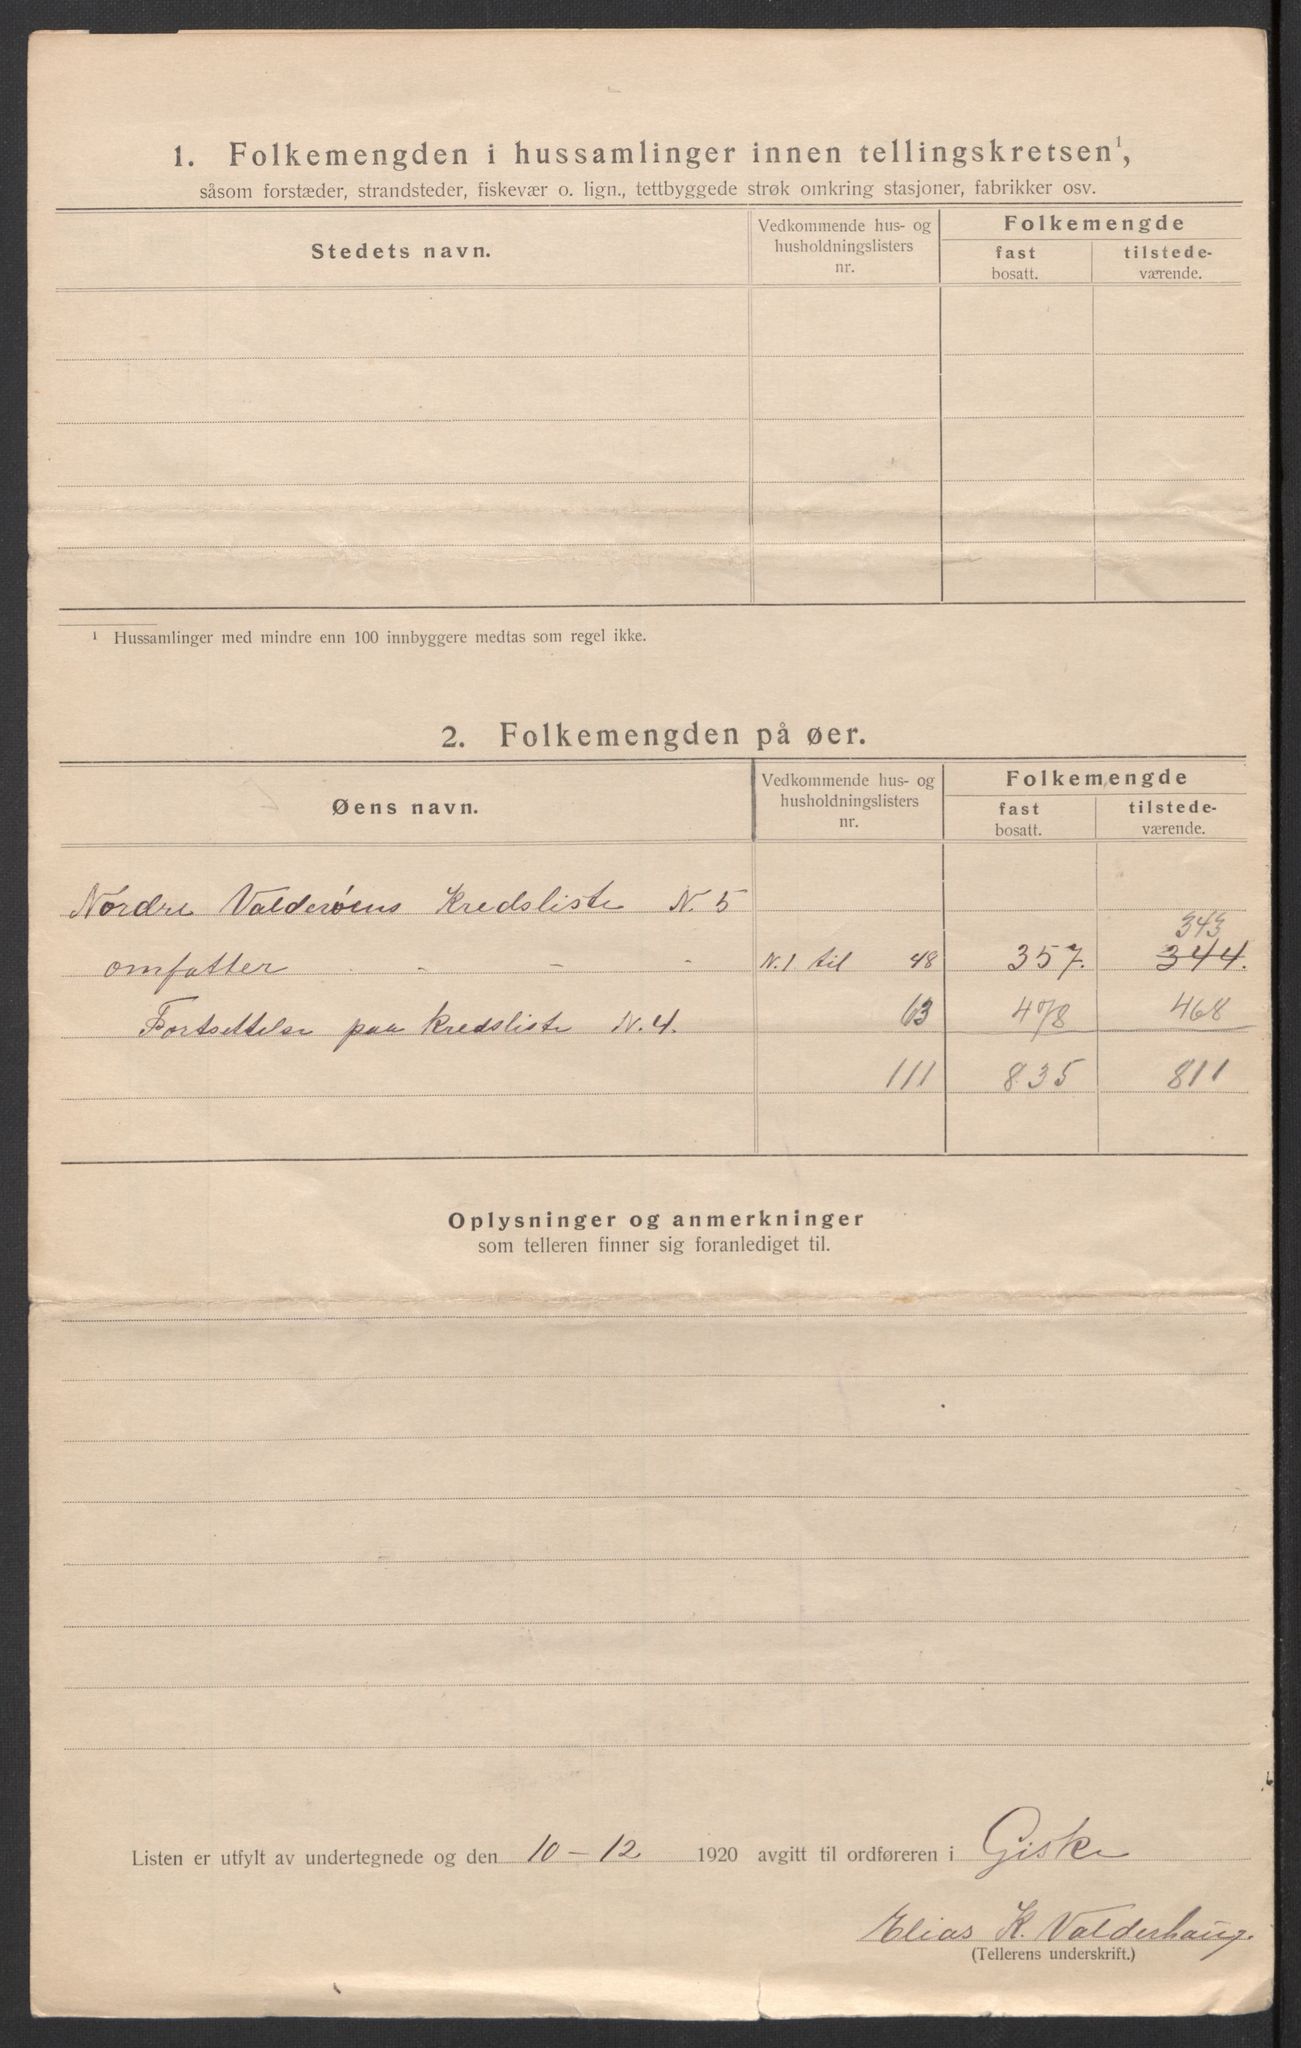 1. Folkemengden i hussamlinger innen tellingskretsen¹,
såsom forstæder, strandsteder, fiskevær o. lign., tettbyggede strøk omkring stasjoner, fabrikker osv.
Stedets navn.
Vedkommende hus- og
husholdningslisters
nr.
Folkemengde
fast
bosatt.
tilstede-
værende.
¹ Hussamlinger med mindre enn 100 innbyggere medtas som regel ikke.
2. Folkemengden på øer.
Øens navn.
Vedkommende hus- og
husholdningslisters
nr.
Folkemengde
fast
bosatt.
tilstede-
værende.
Nordre Valderöens Kredsliste N. 5
343
omfatter - - - - N. 1 til 48 357. 344.
Fortsettelse paa kredsliste N. 4. 63 478 468
111 835 811
Oplysninger og anmerkninger
som telleren finner sig foranlediget til.
Listen er utfylt av undertegnede og den 10-12 1920 avgitt til ordføreren i Giske
Elias K. Valderhaug.
(Tellerens underskrift.)